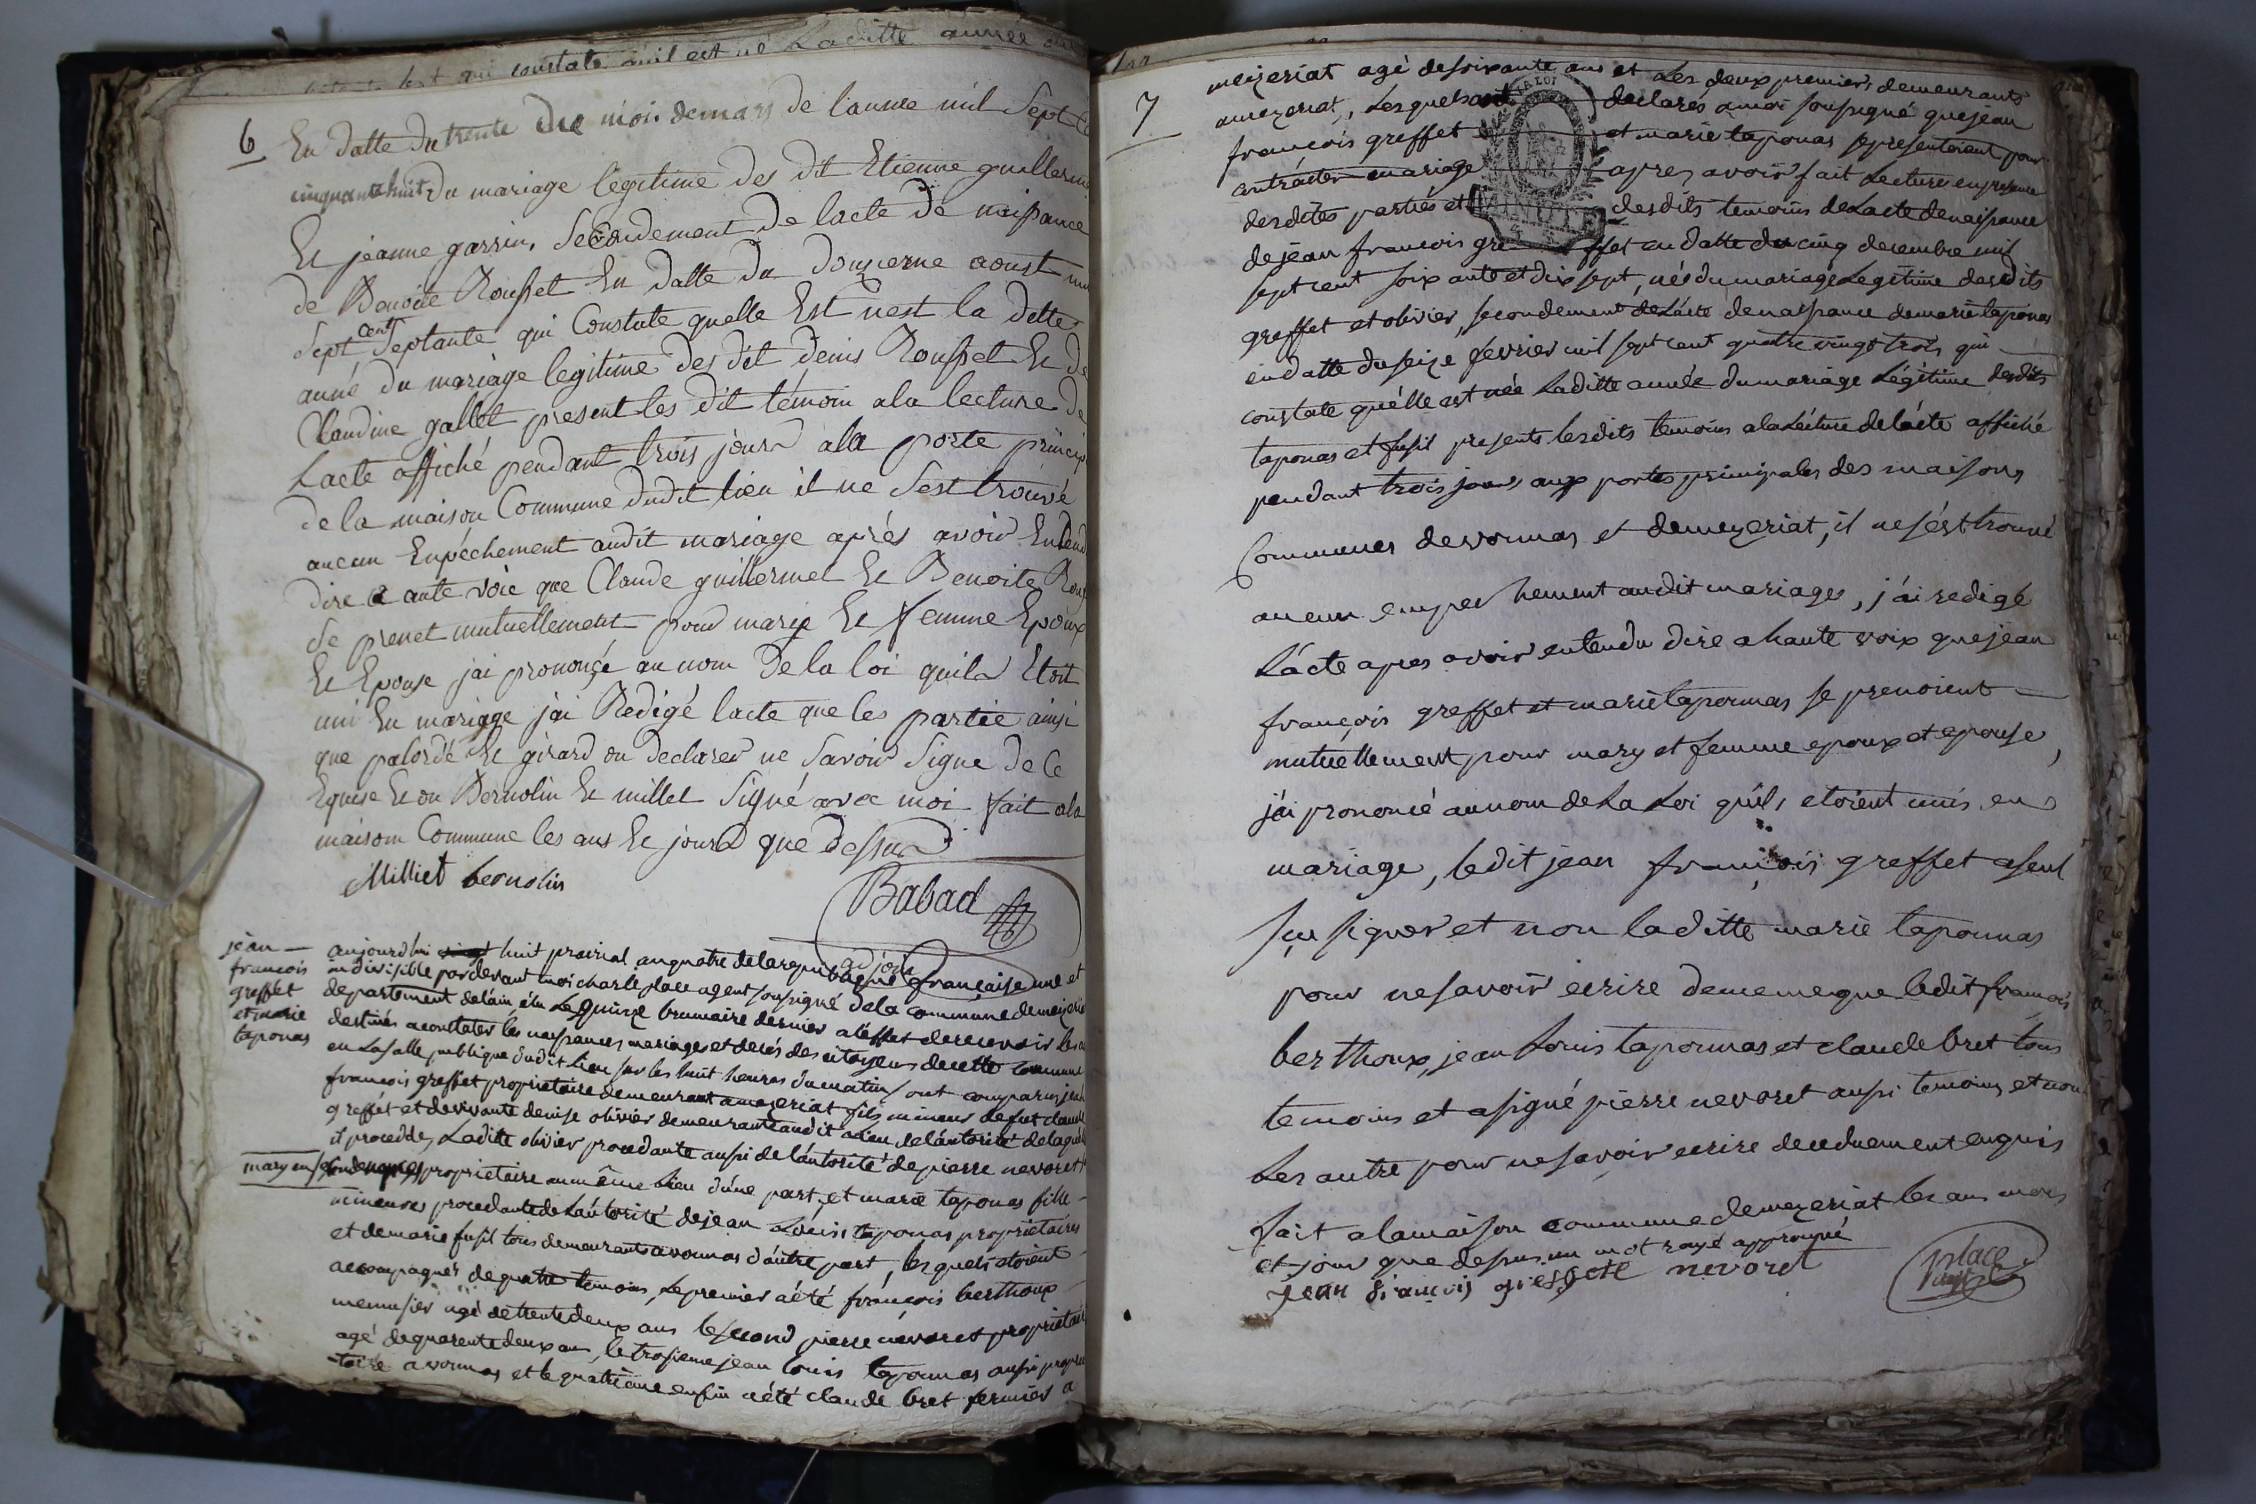 qui constate quil est né Laditte année
6
En datte du trente du mois demars de lannee mil Sept
cinquantehuit du mariage legitime des dit Etienne guillerm
Et jeanne garrin, Secondement de lacte de naissance
de Benoite Rousset En datte du douzieme aoust
Sept cent Septante qui Constate quelle Est nest la ditte
anné du mariage legitime des dit denis Rousset Et de
Claudine gallet present les dit témoin ala lecture de
Lacte affiché pendant trois jours ala porte princip
de la maison Commune dudit lieu il ne Sest trouvé
aucun Enpéchement audit mariage aprés avoir Entend
dire a aute voie que Claude guillermet Et Benoite Rous
Se prenet mutuellement pour marÿ Et femme Epoux
Et Epouse jai prononçé au nom de la loi quils Etoit
uni En mariage jai Redigé lacte que les partie ainsi
que palordé Et girard on declarer ne Savoir Signe de Ce
Equise Et on Bernolin Et millet Signé avec moi fait ala
maison Commune les ans Et jours que dessus
Milliet bernolin
Babad
adjoin
jean
francois
greffet
et marie
taponas
aujourdhui huit prairial anquatre delarepublique francaise une et
indivisible pardevant moi charle place agent soussigné dela commune demezeria
departement delain élu Le quinze brumaire dernier aléffet derecevoir les a
destinés aconstater les naissances mariages et decés des citoyens decette commune
en La salle publique dudit Lieu sur les huit heures dumatin sont comparus jean
francois greffet proprietaire demeurant amezeriat fils mineur defut claude
greffet et devivante denise olivier demeurante audit Lieu delautorité delaquelle
il procedde, Laditte olivier procedante aussi delautorité de pierre nevoret
mary en secondenopces proprietaire aumême Lieu d'une part, et marie taponas fille
mineures procedante de Lautorité dejean Louis taponas proprietaires
et demarie fusil tous demeurants avonnas d'autre part, les quels etoient
accompagnés dequatre temoins, Lepremier aété françois berthoux
menusier agé detrentedeux ans lesecond pierre nevoret proprietaire
agé dequarentedeux ans, le troisieme jean louis taponnas aussi proprie
-taire avonnas et le quatrième enfin aété claude bret fermier a
7
mezeriat agé desoixante ans et Les deux premiers demeurants
amezeriat, Lesquels ont declarés amoi soussigné quejean
françois greffet et marie taponas sepresentoient pour
contracter mariage apres avoir fait Lecture enpresence
desdites parties et desdits temoins deLacte denaissance
dejean francois greffet en datte du cinq decembre mil
sept cent soixante et dix sept, né du mariage Legitime desdits
greffet et olivier, secondement deLacte denaissance demarie taponas
endatte du seize fevrier mil sept cent quatre vingt trois qui
constate quélle est née Laditte année dumariage Légitime desdits
taponas et fusil presents lesdits temoins alaLecture delácte affiché
pendant trois jours aux portes principales des maisons
Communes devonnas et demezeriat, il nesést trouvé
aucun empechement audit mariages, j'ai redigé
Lácte apres avoir entendu dire ahaute voix quejean
françois greffet et marie taponnas se prenoient
mutuellement pour mary et femme epoux et epouse,
j'ai prononcé aunom deLa Loi quils etoient unis en
mariage, ledit jean françois greffet aseul
sçu signer et non laditte marie taponnas
pour nesavoir ecrire dememeque ledit françois
berthoux, jean Louis taponnas et claude bret tous
temoins et asigné pierre nevoret aussi temoins et non
Les autre pour nesavoir ecrire dececduement enquis
fait alamaison commune demezeriat les ans mois
et jour que dessus un mot rayé approuvé
jean francois greffete nevoret
place
agent
LA LOI
MINUTE